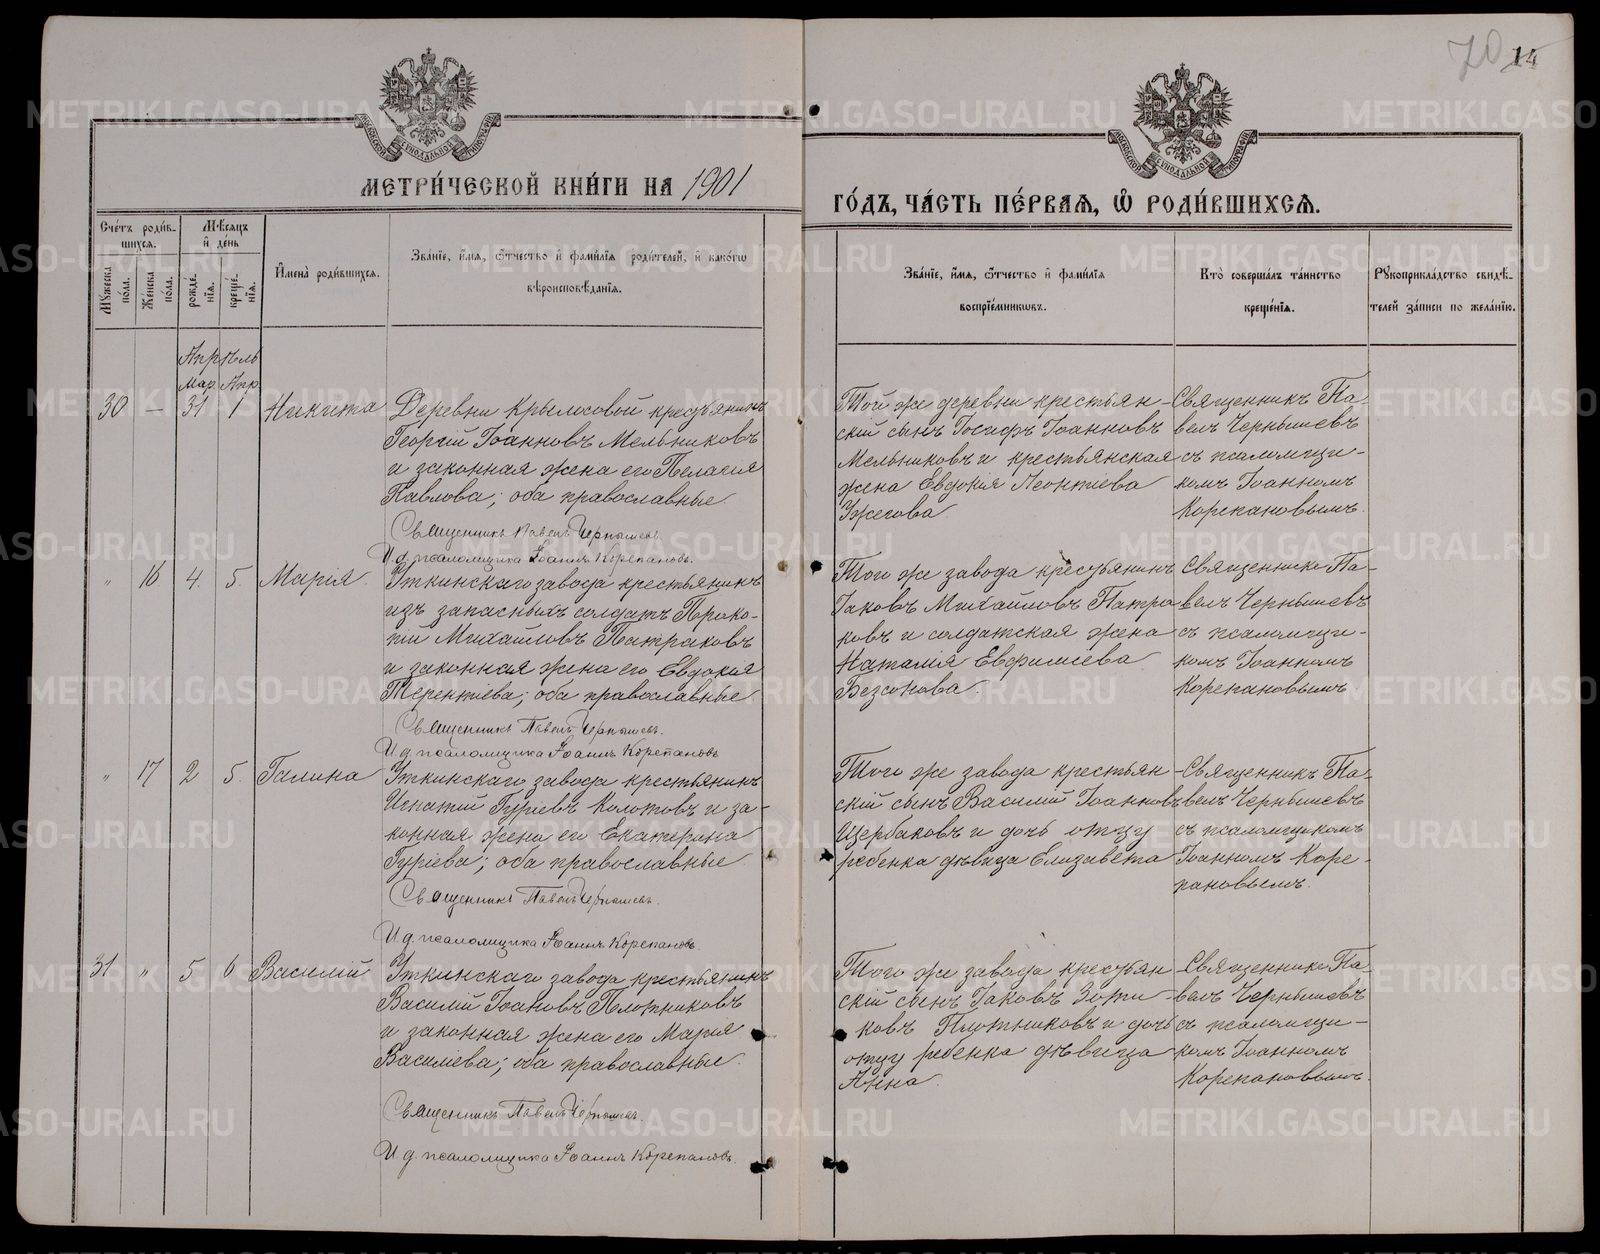 70 14
МЕТРИ́ЧЕСКОЙ КНИ́ГИ НА 1901
ГО́ДЪ, ЧА́СТЬ ПЕ́РВАЯ, Ѽ РОДИ́ВШИХСЯ.
Сче́тъ роди́в-
шихся.
Мѣ́сяцъ
и҆ де́нь
Мꙋ́жеска
по́ла.
Же́нска
по́ла.
рожде́-
нїѧ.
креще́-
нїѧ.
И҆мена̀ роди́вшихся.
Зва́нїе, и҆́мѧ, ѻ҆́тчество и҆ фамі́лїѧ роди́телей, и҆ како́гѡ
вѣроисповѣ́данїѧ.
Зва́нїе, и҆́мѧ, ѻ҆́тчество и҆ фамі́лїѧ
воспрїе́мникѡвъ.
Кто̀ соверша́лъ та́инство
креще́нїѧ.
Рꙋкоприкла́дство свидѣ́-
телей за́писи по жела́нїю.
Апрѣль
Мар. Апр.
30 — 31 1 Никита
Деревни Крылосовой крестьянинъ
Георгій Іоанновъ Мельниковъ
и законная жена его Пелагія
Павлова; оба православные.
Священникъ Павелъ Чернышевъ.
И д. псаломщика Іоаннъ Корепановъ.
Той же деревни крестьян-
скій сынъ Іосифъ Іоанновъ
Мельниковъ и крестьянская
жена Евдокія Леонтіева
Ужегова.
Священникъ Па-
велъ Чернышевъ
съ псаломщи-
комъ Іоанномъ
Корепановымъ.
" 16 4. 5. Марія.
Уткинскаго завода крестьянинъ
изъ запасныхъ солдатъ Проко-
пій Михайловъ Патраковъ
и законная жена его Евдокія
Терентіева; оба православные.
Священникъ Павелъ Чернышевъ.
И д. псаломщика Іоаннъ Корепановъ
Того же завода крестьянинъ
Іаковъ Михайловъ Патра
ковъ и солдатская жена
Наталія Евфиміева
Безсонова.
Священникъ Па-
велъ Чернышевъ
съ псаломщи-
комъ Іоанномъ
Корепановымъ
" 17 2 5. Галина
Уткинскаго завода крестьянинъ
Игнатій Гуріевъ Колотовъ и за-
конная жена его Екатерина
Гуріева; оба православные.
Священникъ Павелъ Чернышевъ.
И д. псаломщика Іоаннъ Корепановъ.
Того же завода крестьян
скій сынъ Василій Іоанновъ
Щербаковъ и дочь отцу
ребенка дѣвица Елизавета
Священникъ Па-
велъ Чернышевъ
съ псаломщикомъ
Іоанномъ Коре-
пановымъ.
31 " 5 6 Василій
Уткинскаго завода крестьянинъ
Василій Іоановъ Плотниковъ
и законная жена его Марія
Василіева; оба православные.
Священникъ Павелъ Чернышевъ.
И д. псаломщика Іоаннъ Корепановъ.
Того же завода крестьян
скій сынъ Іаковъ Зоти-
ковъ Плотниковъ и дочь
отцу ребенка дѣвица
Анна.
Священникъ Па-
велъ Чернышевъ
съ псаломщи-
комъ Іоанномъ
Корепановымъ.